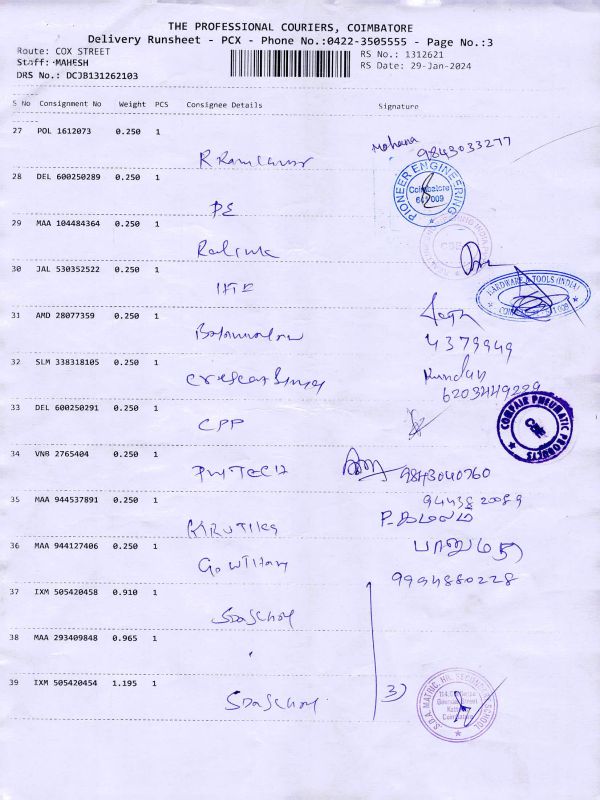 THE PROFESSIONAL COURIERS, COIMBATORE
Delivery Runsheet - PCX - Phone No.:0422-3505555 - Page No.:3
Route: COX STREET
RS No.: 1312621
Staff: MAHESH
RS Date: 29-Jan-2024
DRS No.: DCJB131262103
S No Consignment No Weight PCS Consignee Details Signature
27 POL 1612073 0.250 1
Mohana 9843033277
28 DEL 600250289 0.250 1
PIONEER ENGINEERING
Coimbatore
641 009
PE
29 MAA 104484364 0.250 1
30 JAL 530352522 0.250 1
HARDWARE & TOOLS (INDIA)
31 AMD 28077359 0.250 1
4379949
32 SLM 338318105 0.250 1
Kundan
6203449229
33 DEL 600250291 0.250 1
CPP
COMPAIR PNEUMATIC PRODUCTS
CBE
34 VNB 2765404 0.250 1
9843040760
35 MAA 944537891 0.250 1
9443820089
P. கமலம்
KIRUTIKA
36 MAA 944127406 0.250 1
பானுமதி
Gowtham
9994880228
37 IXM 505420458 0.910 1
38 MAA 293409848 0.965 1
39 IXM 505420454 1.195 1
3)
S.D.A. MATRIC. HR. SECONDARY SCHOOL
Coimbatore